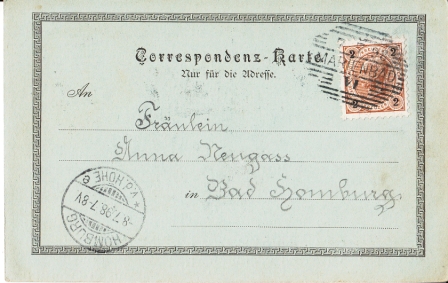 Correspondenz-Karte.
Nur für die Adresse.
2 2
MARIENBAD
2 2
An
Fräulein
Anna Neugass
in Bad Homburg.
HOMBURG
-8.7.98.7-8V
* (V.D.HÖHE) e